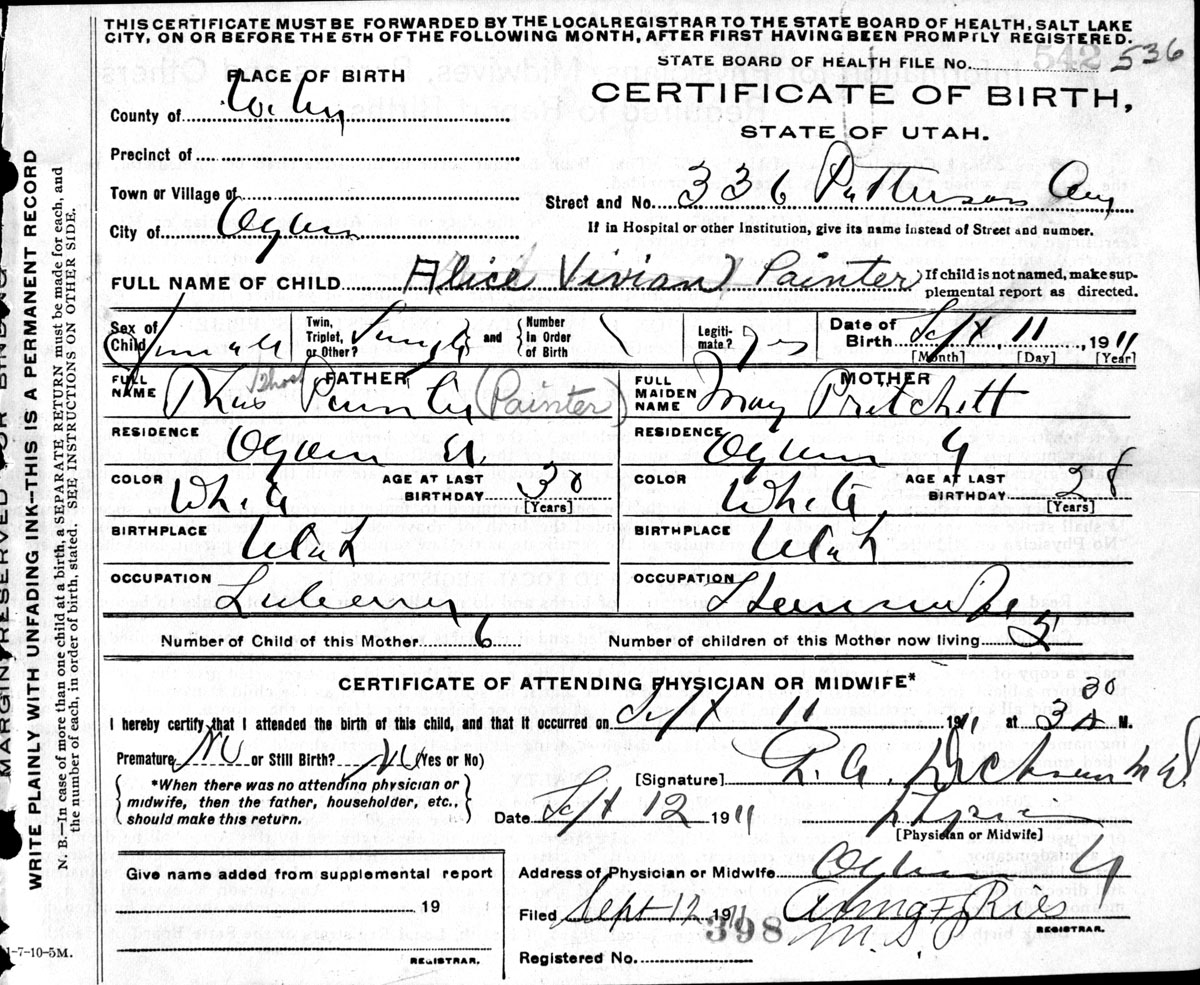 THIS CERTIFICATE MUST BE FORWARDED BY THE LOCAL REGISTRAR TO THE STATE BOARD OF HEALTH, SALT LAKE
CITY, ON OR BEFORE THE 5TH OF THE FOLLOWING MONTH, AFTER FIRST HAVING BEEN PROMPTLY REGISTERED.
STATE BOARD OF HEALTH FILE No. 542 536
PLACE OF BIRTH
CERTIFICATE OF BIRTH,
STATE OF UTAH.
County of
Precinct of
Town or Village of
Street and No. 336 Patterson Avy
City of Ogden
If in Hospital or other Institution, give its name instead of Street and number.
FULL NAME OF CHILD Alice Vivian Painter
If child is not named, make sup-
plemental report as directed.
Sex of Child Female
Twin, Triplet, or Other? Single and Number in Order of Birth
Legiti-mate? Yes
Date of Birth Sept 11, 1911
[Month] [Day] [Year]
FATHER
FULL NAME Thos (Painter)
MOTHER
FULL MAIDEN NAME May Pritchett
RESIDENCE Ogden U.
RESIDENCE Ogden U
COLOR White AGE AT LAST BIRTHDAY 30 [Years]
COLOR White AGE AT LAST BIRTHDAY 28 [Years]
BIRTHPLACE Utah
BIRTHPLACE Utah
OCCUPATION
OCCUPATION Housewife
Number of Child of this Mother 6
Number of children of this Mother now living 5
CERTIFICATE OF ATTENDING PHYSICIAN OR MIDWIFE*
I hereby certify that I attended the birth of this child, and that it occurred on Sept 11 1911 at 3 30 A M.
Premature No or Still Birth? No (Yes or No)
[Signature] M.D.
*When there was no attending physician or
midwife, then the father, householder, etc.,
should make this return.
Date Sept 12 1911
[Physician or Midwife]
Give name added from supplemental report
19
REGISTRAR.
Address of Physician or Midwife Ogden U
Filed Sept 12 1911
REGISTRAR.
398
Registered No.
MARGIN RESERVED FOR BINDING
WRITE PLAINLY WITH UNFADING INK—THIS IS A PERMANENT RECORD
N. B.—In case of more than one child at a birth, a SEPARATE RETURN must be made for each, and
the number of each, in order of birth, stated. SEE INSTRUCTIONS ON OTHER SIDE.
1-7-10-5M.